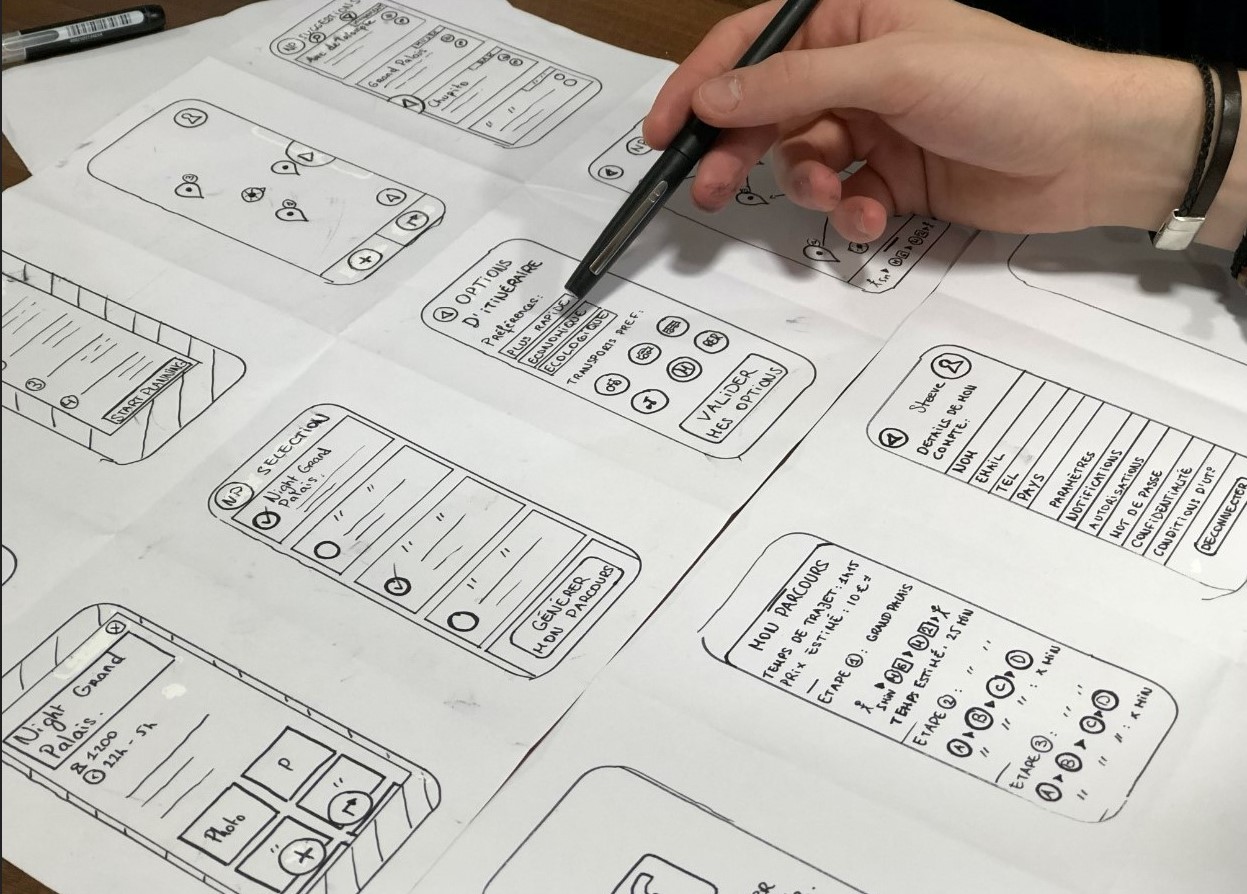 NP
SUGGESTIONS
Grand Palais
Chupito
NP
OPTIONS
D'ITINÉRAIRE
Préférences:
PLUS RAPIDE
ECONOMIQUE
ECOLOGIQUE
TRANSPORTS PREF:
RER
VALIDER
MES OPTIONS
3
4
START PLANNING
NP SELECTION
Night Grand
Palais.
"
"
"
"
GÉNÉRER
MON PARCOURS
Steeve
DETAILS DE MON
COMPTE:
NOM
EMAIL
TEL
PAYS
PARAMÈTRES
NOTIFICATIONS
AUTORISATIONS
MOT DE PASSE
CONFIDENTIALITÉ
CONDITIONS D'UT°
DECONNECTER
MON PARCOURS
TEMPS DE TRAJET: 1H15
PRIX ESTIMÉ: 10€
ETAPE 1: GRAND PALAIS
5MIN
TEMPS ESTIMÉ: 25 MIN
ETAPE 2: " "
A B C D
" " : X MIN
ETAPE 3: "
A B C D
" " : X MIN
Night Grand
Palais.
1200
22h - 5h
P
"
Photo
"